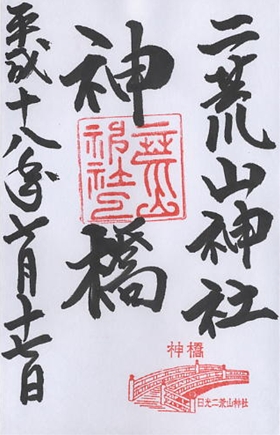 二荒山神社
神橋
二荒山
神社印
平成十八年六月十七日
神橋
日光二荒山神社